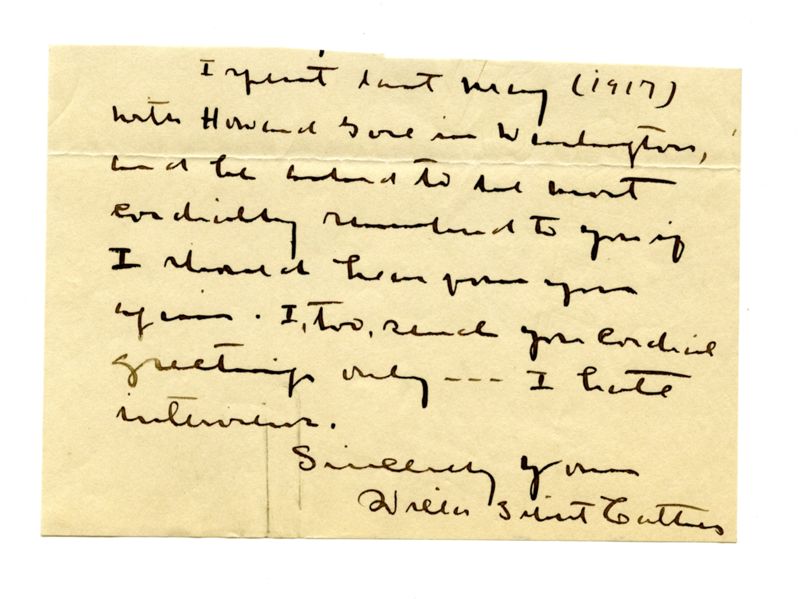 I spent last May (1917)
with Howard Gore in Washington,
and he asked to be most
cordially remembered to you if
I should hear from you
again. I, too, send you cordial
greetings only --- I hate
interviews.
Sincerely yours
Willa Sibert Cather